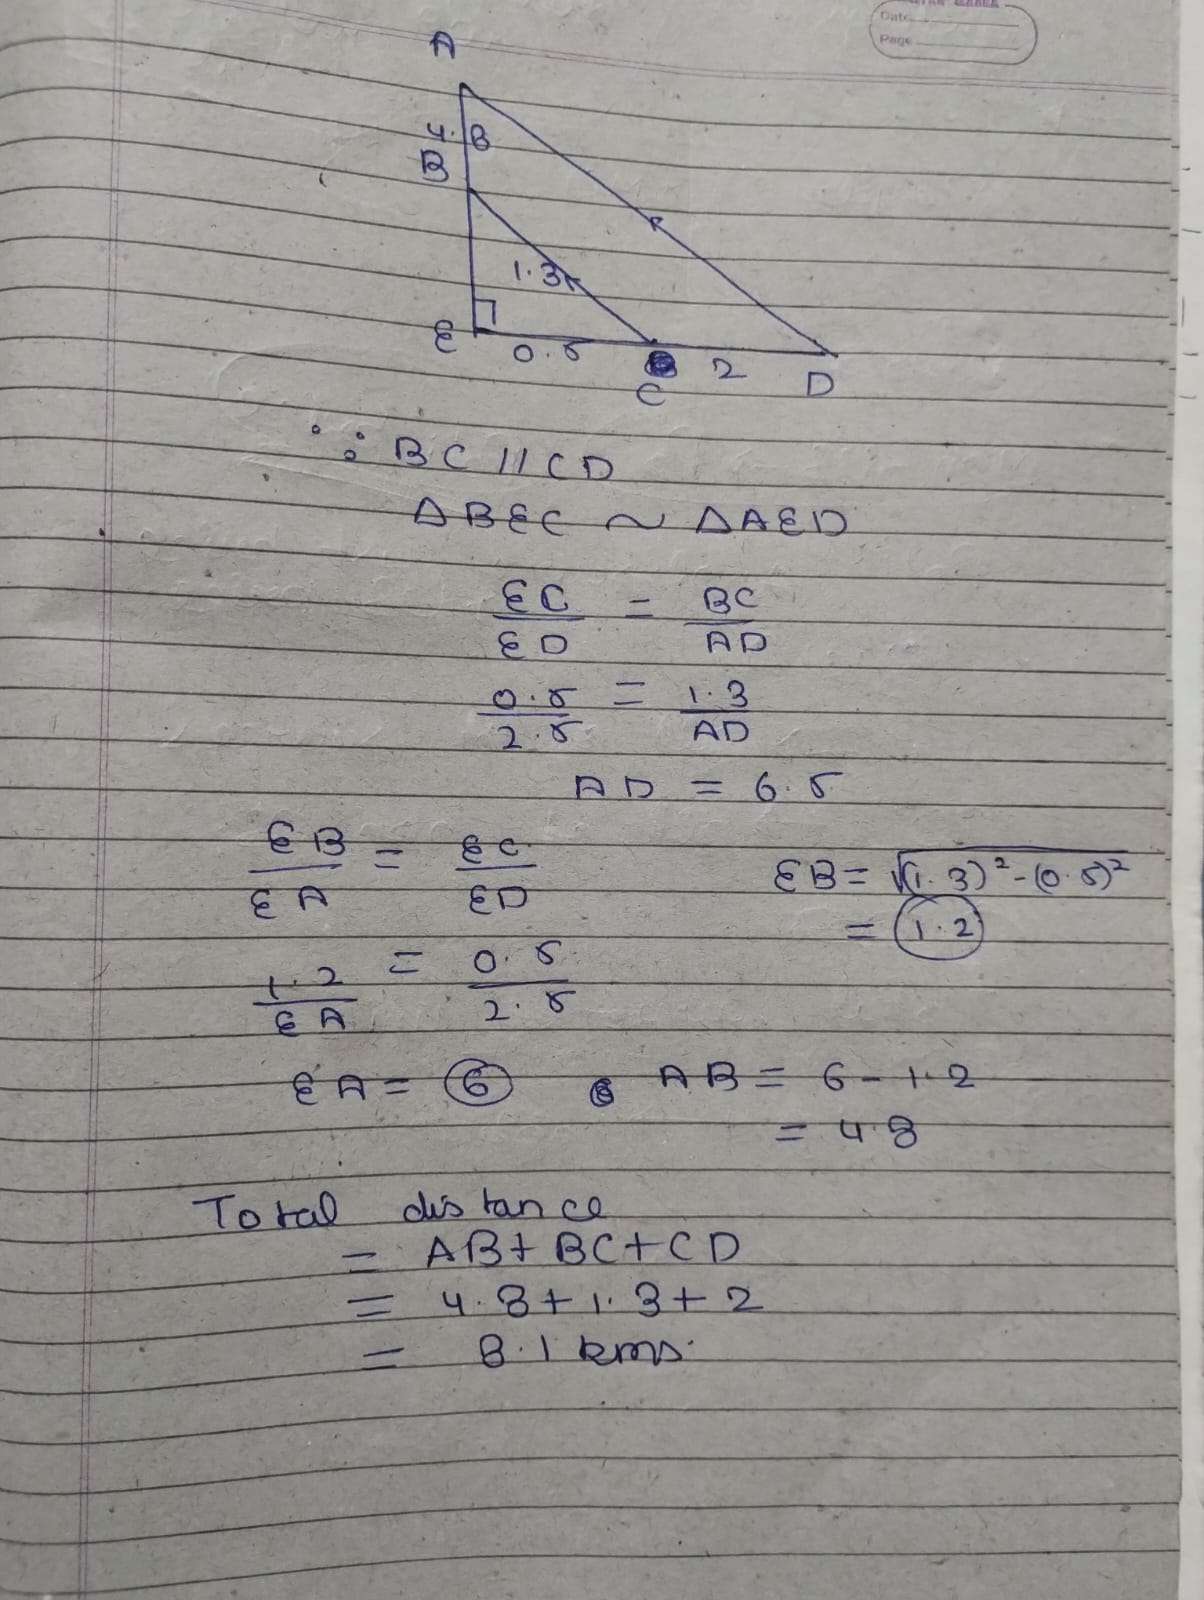 Date
Page
A
4.8
B
1.3
E
0.5
C
2
D
∵ BC || CD
ΔBEC ~ ΔAED
EC/ED = BC/AD
0.5/2.5 = 1.3/AD
AD = 6.5
EB/EA = EC/ED
EB = √(1.3)² - (0.5)²
= 1.2
1.2/EA = 0.5/2.5
EA = 6
AB = 6 - 1.2
= 4.8
Total distance
= AB + BC + CD
= 4.8 + 1.3 + 2
= 8.1 kms.